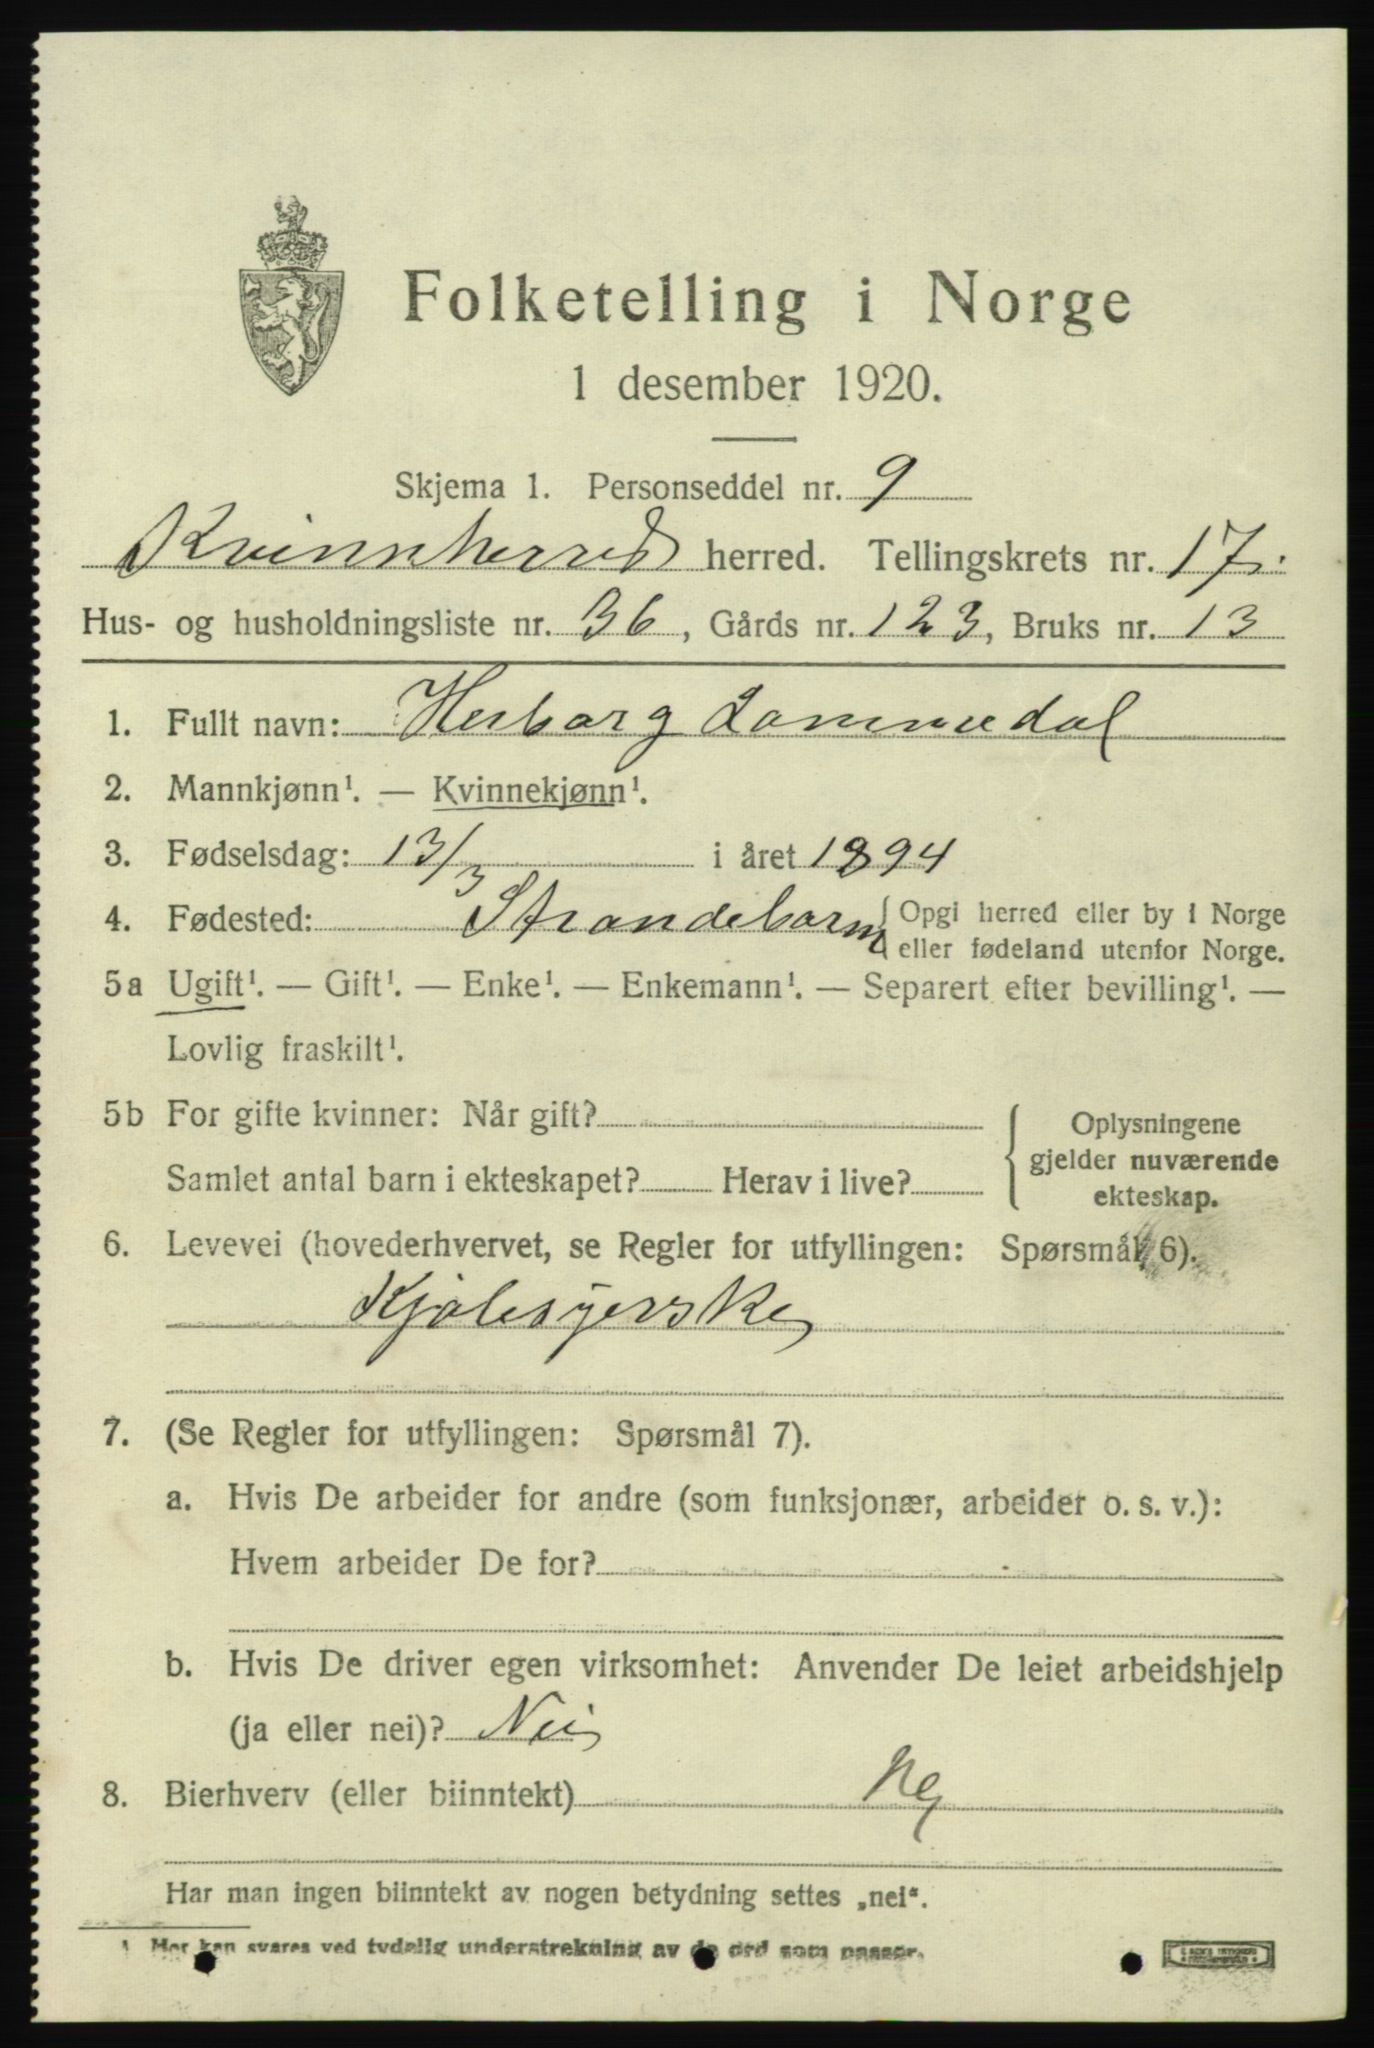 Folketelling i Norge
1 desember 1920.
Skjema 1. Personseddel nr. 9
Kvinnherred herred. Tellingskrets nr. 17.
Hus- og husholdningsliste nr. 36, Gårds nr. 123, Bruks nr. 13
1. Fullt navn: Herborg Lammedal
2. Mannkjønn¹. — Kvinnekjønn¹.
3. Fødselsdag: 13/3 i året 1894
4. Fødested: Strandebarm { Opgi herred eller by i Norge
eller fødeland utenfor Norge.
5a Ugift¹. — Gift¹. — Enke¹. — Enkemann¹. — Separert efter bevilling¹. —
Lovlig fraskilt¹.
5b For gifte kvinner: Når gift? { Oplysningene
gjelder nuværende
Samlet antal barn i ekteskapet? Herav i live?
ekteskap.
6. Levevei (hovederhvervet, se Regler for utfyllingen: Spørsmål 6).
Kjolesyerske
7. (Se Regler for utfyllingen: Spørsmål 7).
a. Hvis De arbeider for andre (som funksjonær, arbeider o. s. v.):
Hvem arbeider De for?
b. Hvis De driver egen virksomhet: Anvender De leiet arbeidshjelp
(ja eller nei)? Nei
8. Bierhverv (eller biinntekt) Nej
Har man ingen biinntekt av nogen betydning settes „nei“.
¹ Her kan svares ved tydelig understrekning av de ord som passer.